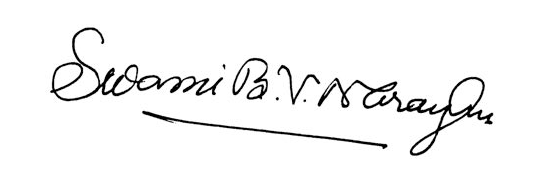 Swami B.V. Narayan